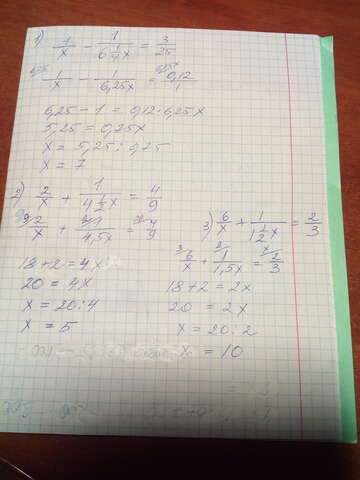 1) 1/x - 1/(6 1/4 x) = 3/25
6,25 1/x - 1/(6,25x) = 6,25x 0,12/1
6,25 - 1 = 0,12 · 6,25x
5,25 = 0,75x
x = 5,25 : 0,75
x = 7
2) 2/x + 1/(4 1/2 x) = 4/9
9 2/x + 2 1/(4,5x) = x 4/9
18 + 2 = 4x
20 = 4x
x = 20 : 4
x = 5
3) 6/x + 1/(1 1/2 x) = 2/3
3 6/x + 2 1/(1,5x) = x 2/3
18 + 2 = 2x
20 = 2x
x = 20 : 2
x = 10